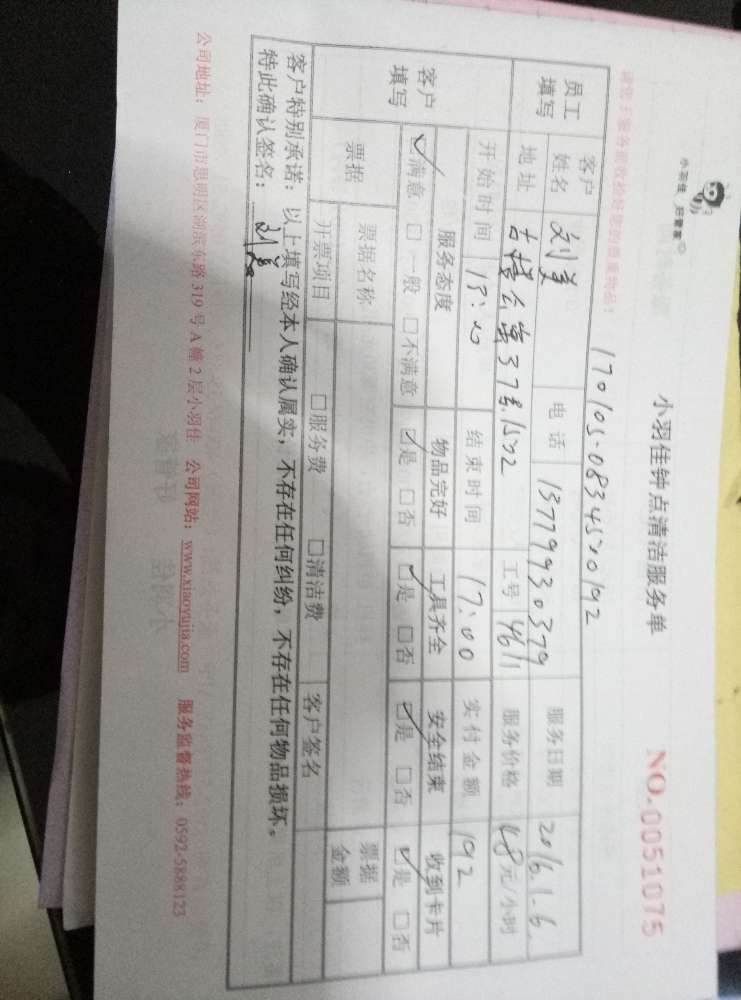 小羽佳 好管家
小羽佳钟点清洁服务单
NO.0051075
170105-0834520192
员工填写
客户姓名 刘美 电话 13779930379 服务日期 2016.1.6.
地址 古楼公寓37号1502 工号 4611 服务价格 48元/小时
开始时间 13:00 结束时间 17:00 实付金额 192
客户填写
服务态度 物品完好 工具齐全 安全结束 收到卡片
☑满意 □一般 □不满意 ☑是 □否 ☑是 □否 ☑是 □否 ☑是 □否
票据 票据名称 票据金额
开票项目 □服务费 □清洁费 客户签名
客户特别承诺：以上填写经本人确认属实，不存在任何纠纷，不存在任何物品损坏。
特此确认签名：刘美
公司地址：厦门市思明区湖滨东路319号A幢2层小羽佳 公司网站：www.xiaoyujia.com 服务监督热线：0592-5888123